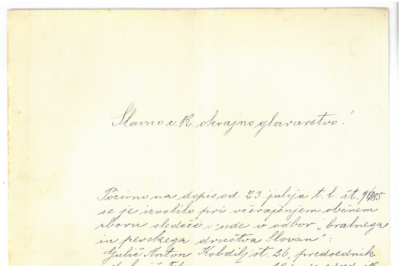 Slavno c. k. okrajno glavarstvo!
Pozivno na dopis od 23 julija t. l. št.
se je izvolilo pri včerajšnjem občnem
zboru sledeče ude v odbor „bralnega
in pevskega društva Slovan":
Gulič Anton Kobdilj št 26, predsednik